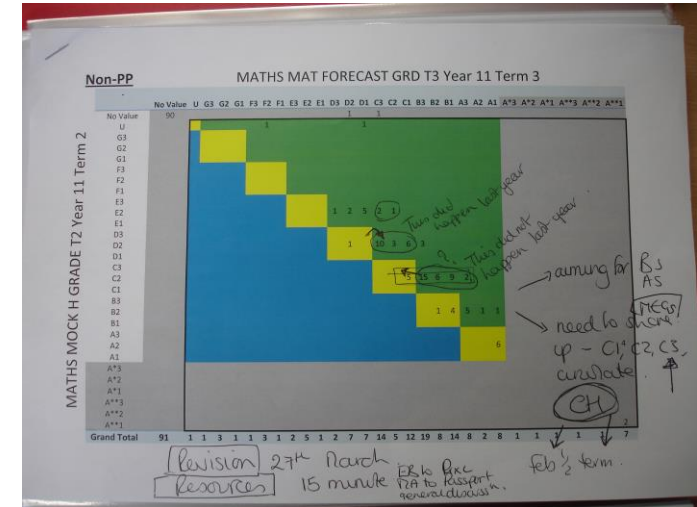 Non-PP
MATHS MAT FORECAST GRD T3 Year 11 Term 3
MATHS MOCK H GRADE T2 Year 11 Term 2
No Value U G3 G2 G1 F3 F2 F1 E3 E2 E1 D3 D2 D1 C3 C2 C1 B3 B2 B1 A3 A2 A1 A*3 A*2 A*1 A**3 A**2 A**1
No Value 90 1 1
U 1 1
G3
G2
G1
F3
F2
F1
E3
E2 1 2 5 2 1
E1
D3
D2 1 10 3 6 3
D1
C3
C2 5 15 6 9 2
C1
B3
B2 1 4 5 1 1
B1
A3
A2 6
A1
A*3
A*2
A*1
A**3
A**2 2
A**1
Grand Total 91 1 1 3 1 1 3 1 2 5 1 2 7 7 14 5 12 19 8 14 8 2 8 1 1 1 1 7
This did
happen last year
?. This did not
happen last year.
aiming for Bs
As
MEGs
need to share
up - C1, C2, C3,
CH
Feb 1/2 term.
Revision 27th March
Resources 15 minute
to Passport
general discuss